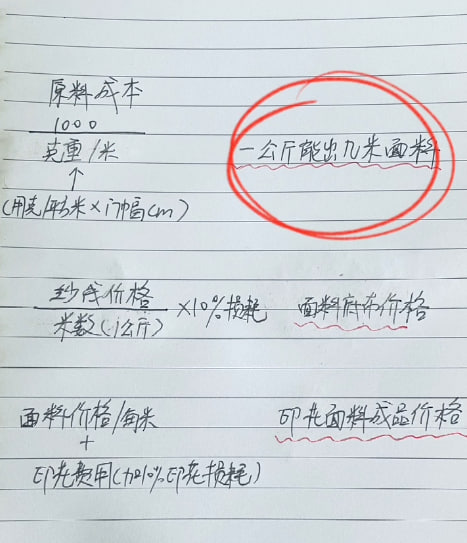 原料成本
1000
克重/米 一公斤能出几米面料
↑
(用克/平方米×门幅cm)
纱线价格
米数(1公斤) ×10%损耗 面料底布价格
面料价格/每米 印花面料成品价格
+
印花费用(加10%印花损耗)